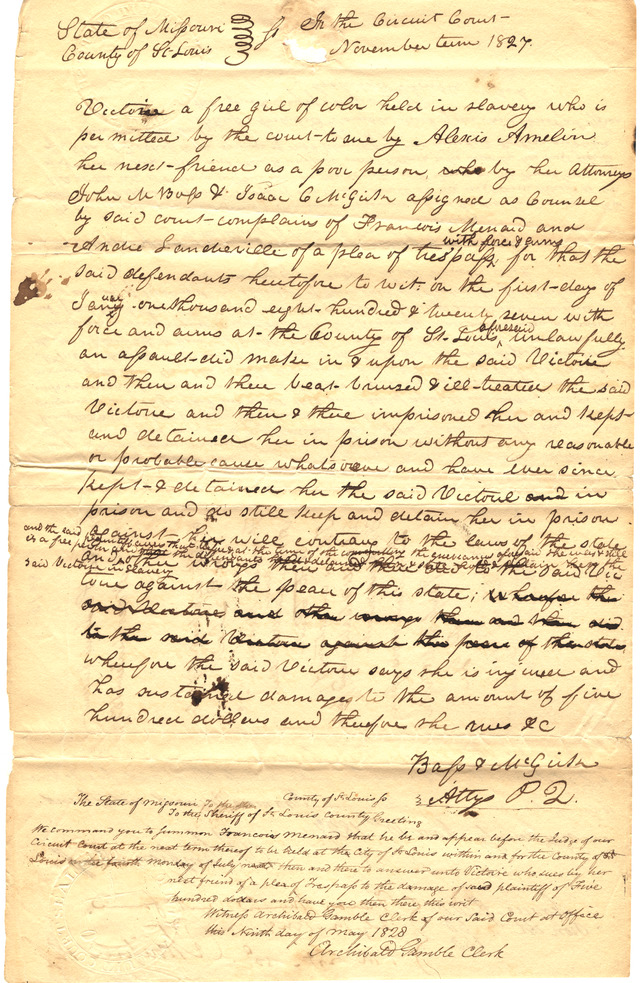 State of Missouri } ss In the Circuit Court
County of St Louis } November term 1827.
Victoire a free girl of color held in slavery who is
permitted by the court to sue by Alexis Amelin
her next friend as a poor person, by her Attorneys
John M Bass & Isaac C McGirk assigned as Counsel
by said court complains of Francois Menard and
with force & arms
Andre Landreville of a plea of trespass, for that the
said defendants heretofore to wit. on the first day of
January one thousand eight hundred & twenty seven with
aforesaid
force and arms at the County of St. Louis, unlawfully
an assault did make in & upon the said Victoire
and then and there beat bruised & ill-treated the said
Victoire and then & there imprisoned her and kept
and detained her in prison without any reasonable
or probable cause whatsoever and have ever since
kept & detained her the said Victoire in
prison and do still keep and detain her in prison
against her will contrary to the laws of the state
and the said plaintiff avers that before & at the time of the committing the grievances aforesaid she was & still
is a free person and the defendants
said Victoire in slavery
and other wrongs then and there did to the said Vic
toire against the peace of this state; wherefore the
said Victoire and other wrongs then and there did
to the said Victoire against the peace of the state
wherefore the said Victoire says she is injured and
has sustained damages to the amount of five
hundred dollars and therefore she sues &c
Bass & McGirk
Attys P. Q.
The State of Missouri County of St Louis ss
To the Sheriff of St. Louis County Greeting
We command you to summon Francois Menard that he be and appear before the Judge of our
Circuit Court at the next term thereof to be held at the City of St Louis within and for the County of St
Louis on the fourth Monday of July next then and there to answer unto Victoire who sues by her
next friend of a plea of Trespass to the damage of said plaintiff of Five
hundred dollars and have you then there this writ
Witness Archibald Gamble Clerk of our Said Court at Office
this Ninth day of May 1828
Archibald Gamble Clerk